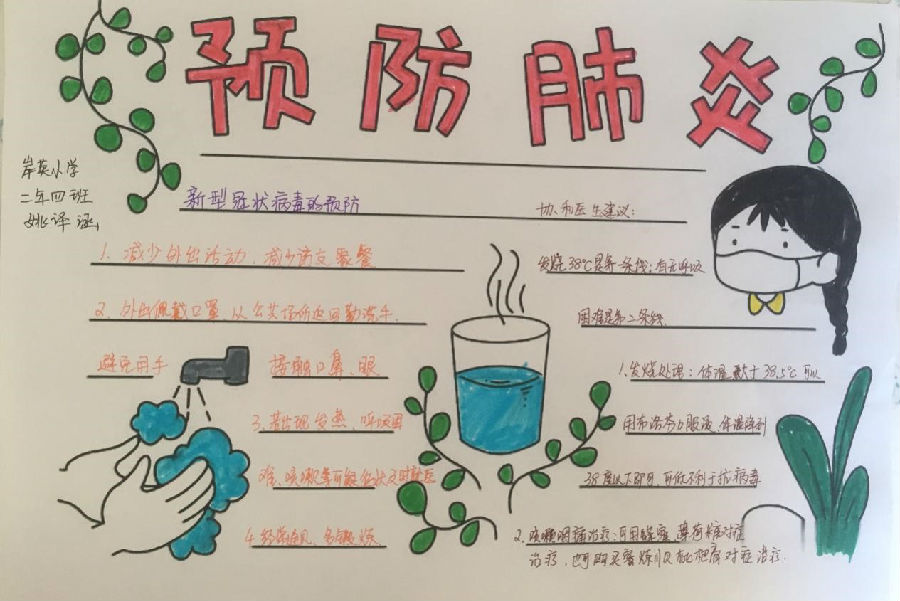 预防肺炎
岸英小学
二年四班
姚译涵
新型冠状病毒的预防
1. 减少外出活动,减少亲友聚餐
2. 外出佩戴口罩,从公共场所返回勤洗手.
避免用手 接触口鼻、眼
3. 若出现发热、呼吸困
难、咳嗽等可疑症状及时就医
4. 经常通风,多锻炼.
协和医生建议:
发烧38℃是第一条线;有无呼吸
困难是第二条线.
1. 发烧处理:体温大于38.5℃可以
用布洛芬口服液,体温降到
38度以下即可,
不利于抗病毒
2. 咳嗽咽痛治疗:可用
对症
治疗,也可
对症治疗.